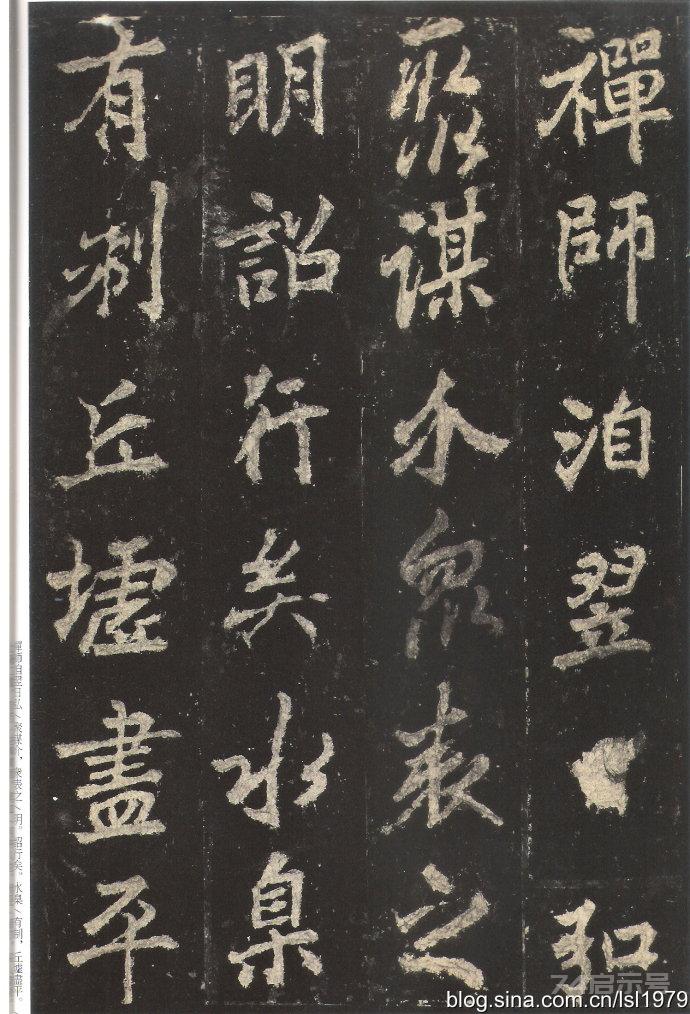 禪師洎翌弘
聚謀介衆表之
明詔行矣水臬
有制丘墟盡平
禪師洎翌日弘〈聚謀介，衆表之〈明。詔行矣。水臬〈有制，丘墟盡平。
启示号
blog.sina.com.cn/lsl1979